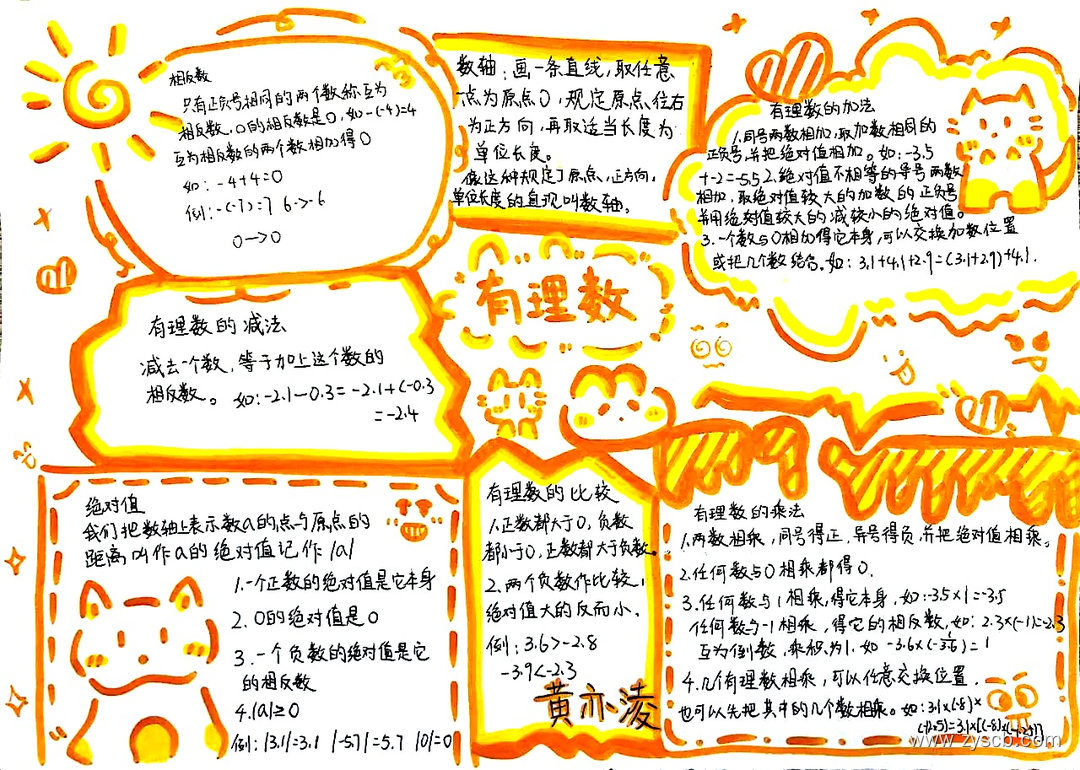 相反数
只有正负号相同的两个数称互为
相反数,0的相反数是0,如-(-4)=4
互为相反数的两个数相加得0
如:-4+4=0
例:-(-7)=7 6->-6
0->0
数轴:画一条直线,取任意
一点为原点0,规定原点往右
为正方向,再取适当长度为
单位长度。
像这种规定了原点,正方向,
单位长度的直现叫数轴。
有理数的加法
1.同号两数相加,取加数相同的
正负号,并把绝对值相加。如:-3.5
+-2=-5.5 2.绝对值不相等的异号两数
相加,取绝对值较大的加数的正负号
并用绝对值较大的减较小的绝对值。
3.一个数与0相加得它本身,可以交换加数位置
或把几个数结合。如:3.1+4.1+2.9=(3.1+2.9)+4.1.
有理数
有理数的减法
减去一个数,等于加上这个数的
相反数。如:-2.1-0.3=-2.1+(-0.3
=-2.4
绝对值
我们把数轴上表示数a的点与原点的
距离叫作a的绝对值记作|a|
1.一个正数的绝对值是它本身
2.0的绝对值是0
3.一个负数的绝对值是它
的相反数
4.|a|≥0
例:|3.1|=3.1 |-5.7|=5.7 |0|=0
有理数的比较
1.正数都大于0,负数
都小于0,正数都大于负数。
2.两个负数作比较,
绝对值大的反而小.
例:3.6>-2.8
-3.9<-2.3
黄亦凌
有理数的乘法
1.两数相乘,同号得正,异号得负,并把绝对值相乘。
2.任何数与0相乘都得0.
3.任何数与1相乘,得它本身,如:-3.5×1=-3.5
任何数与-1相乘,得它的相反数,如:2.3×(-1)=-2.3
互为倒数,乘积为1.如 -3.6×(-)=1
4.几个有理数相乘,可以任意交换位置.
也可以先把其中的几个数相乘。如:3.1×(-8)×
(-1.25)=3.1×[(-8)×(-1.25)]
www.zyscb.com